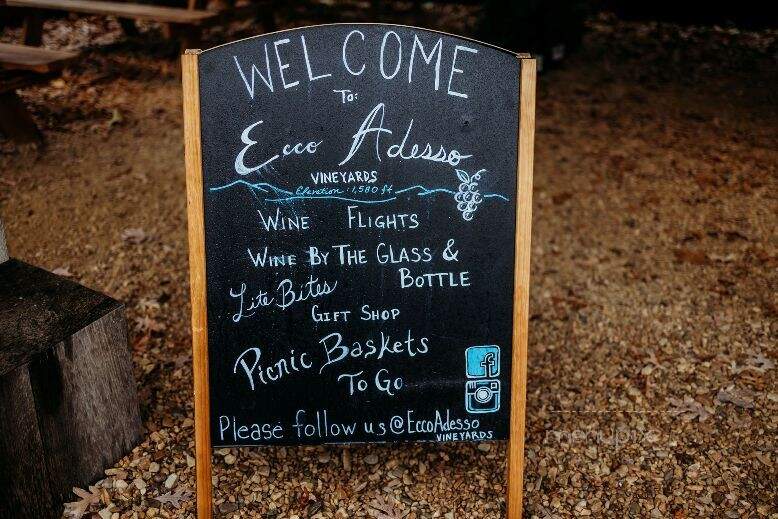 WELCOME
To:
Ecco Adesso
VINEYARDS
Elevation: 1,580 ft
WINE FLIGHTS
WINE BY THE GLASS &
BOTTLE
Lite Bites
GIFT SHOP
Picnic Baskets
To Go
f
Please follow us @EccoAdesso
VINEYARDS